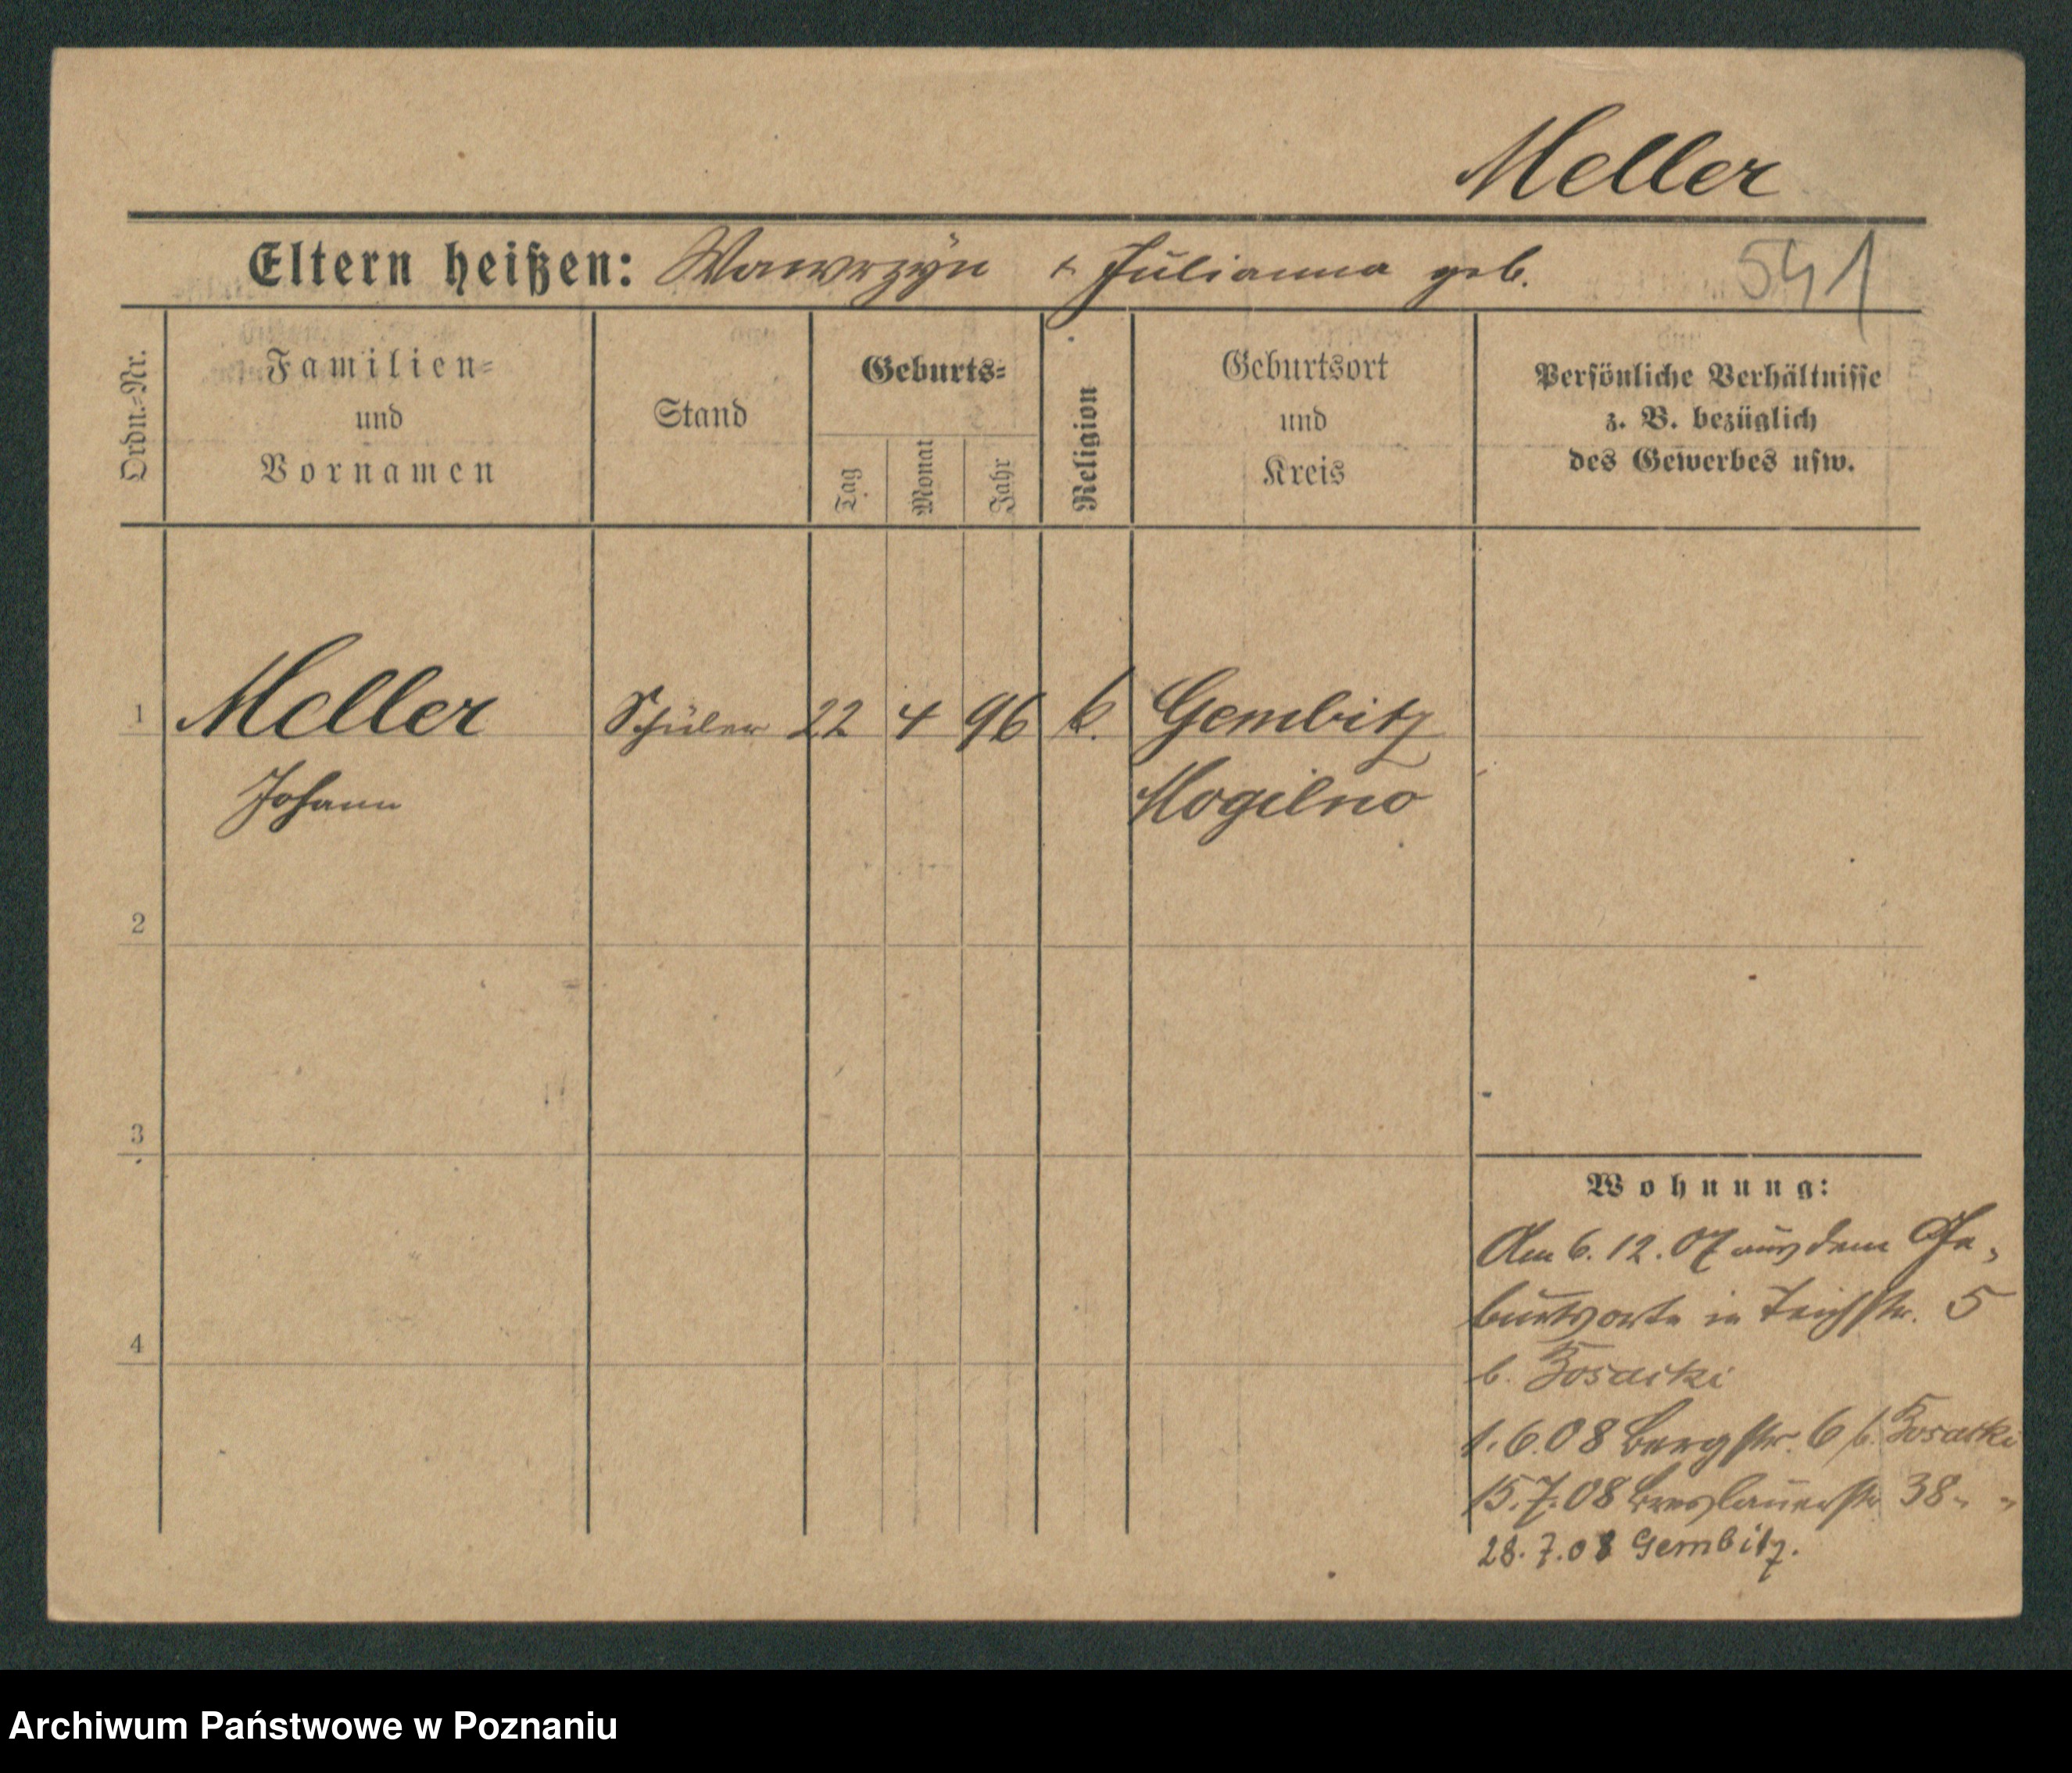 Meller
Eltern heißen: Wawrzÿn + Julianna geb.
541
Ordn.-Nr.
Familien-
und
Vornamen
Stand
Geburts-
Tag
Monat
Jahr
Religion
Geburtsort
und
Kreis
Persönliche Verhältnisse
z. B. bezüglich
des Gewerbes usw.
1 Meller Schüler 22 4 96 k. Gembitz
Johann Mogilno
2
3
4
Wohnung:
Am 6.12.07 aus dem Ge-
burtsorte in Teichstr. 5
b.
1.6.08 Bergstr. 6 b.
15.7.08 Breslauerstr 38 " "
28.7.08 Gembitz.
Archiwum Państwowe w Poznaniu